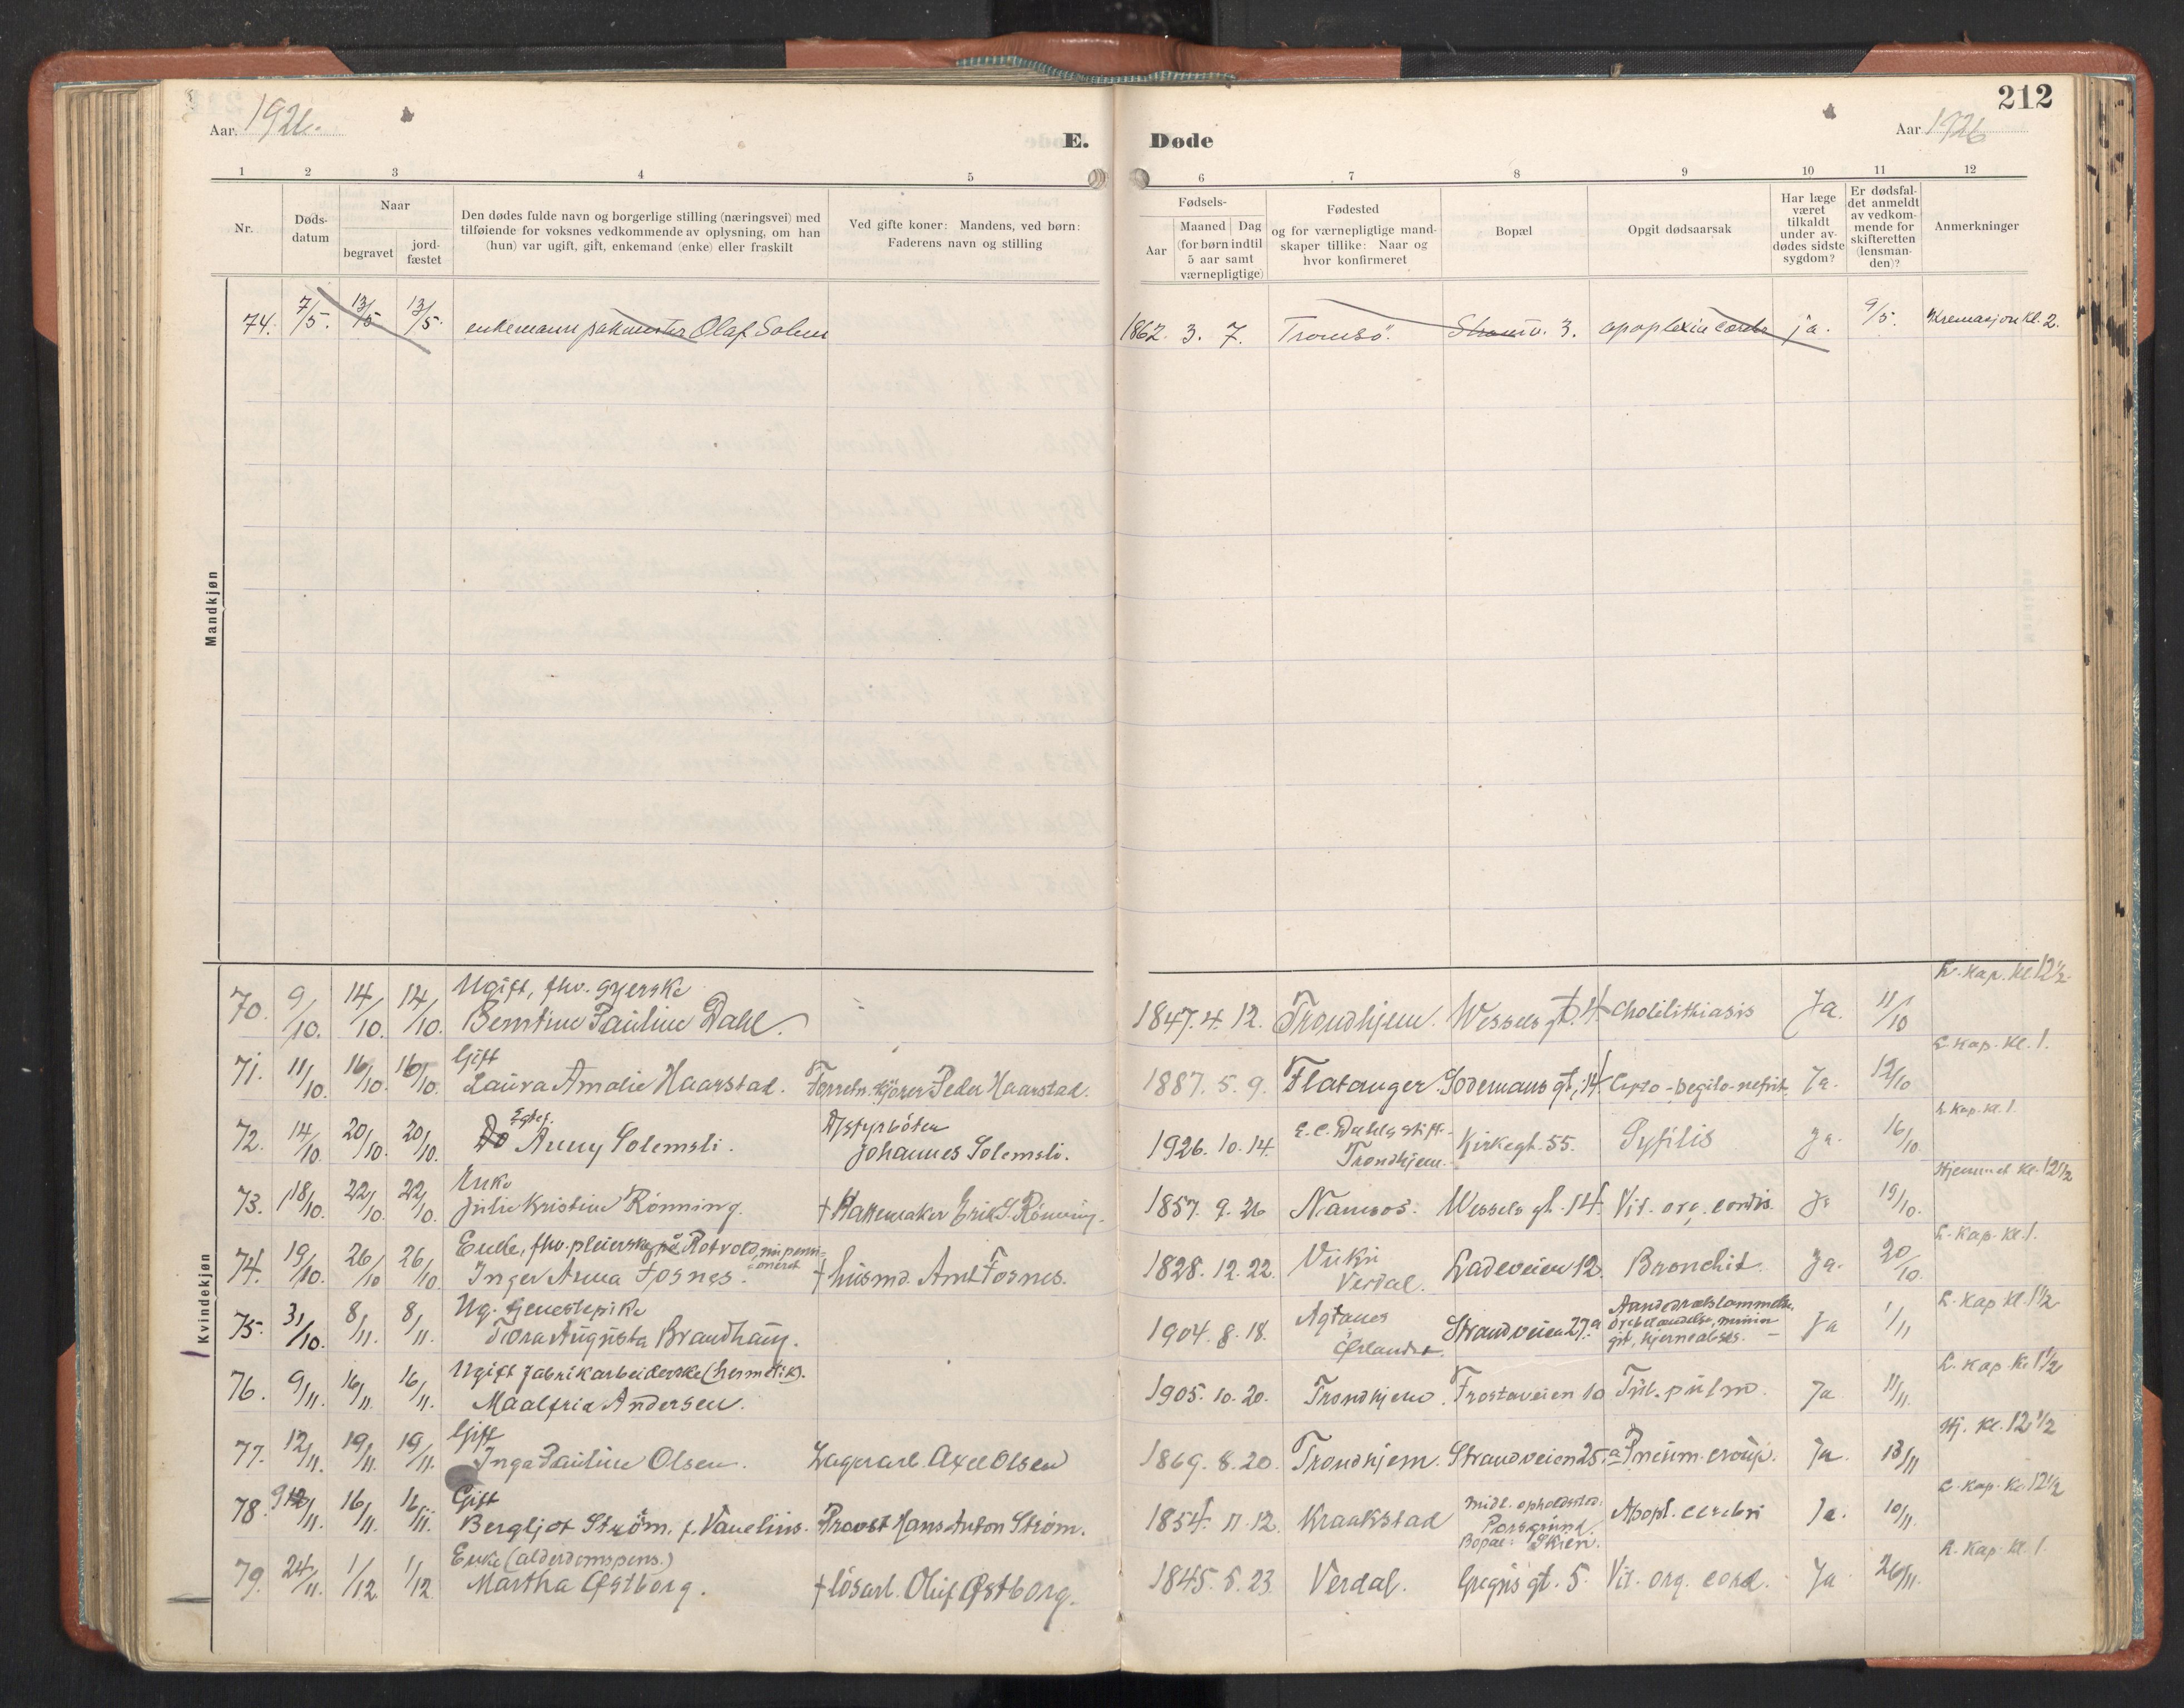 212
Aar. 1926.
E. Døde
Aar 1926
1 2 3 4 5 6 7 8 9 10 11 12
Nr.
Døds-
datum
Naar
begravet
jord-
fæstet
Den dødes fulde navn og borgerlige stilling (næringsvei) med
tilføiende for voksnes vedkommende av oplysning, om han
(hun) var ugift, gift, enkemand (enke) eller fraskilt
Ved gifte koner: Mandens, ved børn:
Faderens navn og stilling
Fødsels-
Aar
Maaned Dag
(for børn indtil
5 aar samt
værnepligtige)
Fødested
og for værnepligtige mand-
skaper tillike: Naar og
hvor konfirmeret
Bopæl
Opgit dødsaarsak
Har læge
været
tilkaldt
under av-
dødes sidste
sygdom?
Er dødsfal-
det anmeldt
av vedkom-
mende for
skifteretten
(lensman-
den)?
Anmerkninger
Mandkjøn
74. 7/5. 13/5 13/5. enkemann pakmester Olaf Solem 1862. 3. 7. Tromsö. Strandv. 3. apoplexia cordis ja. 9/5. Kremasjon kl. 2.
Kvindekjøn
L. kap. kl 12½
Ugift, fhv. syerske
70. 9/10. 14/10. 14/10. Berntine Pauline Dahl. 1847. 4. 12. Trondhjem. Wessels gt. 14 Cholilithiasis Ja. 11/10
L. kap. kl. 1.
Gift
71. 11/10. 16/10. 16/10. Laura Amalie Haarstad. Forretn. kjörer Peder Haarstad. 1887. 5. 9. Flatanger Sodemans gt. 14 Cysto-pegilo-nefrit. Ja. 12/10
L. kap. kl. 1.
Egtef. Dystyrböter E. C. Dahls stift.
72. 14/10 20/10. 20/10. Do Anny Solemsli. Johannes Solemsli. 1926. 10. 14. Trondhjem. Kirkegt. 55. Syfilis Ja. 16/10.
Hjemmet kl. 12½
Enke
73. 18/10. 22/10. 22/10. Julie Kristine Rönning. † Hattemaker Erik S. Rönning. 1857. 9. 26 Namsos. Wessels gt. 14. Vit. org. cordis. Ja 19/10.
L. kap. kl. 1.
Enke, fhv. pleierske på Rotvold, nu pensi=
oneret
74. 19/10. 26/10 26/10 Inger Anna Fosnes. † husmd. Arnt Fosnes. 1828. 12. 22. Vuku
Verdal. Ladeveien 12. Bronchit. Ja. 20/10.
L. kap kl. 1½
Ug. tjenestepike
75. 31/10. 8/11. 8/11. Tora Augusta Brandhaug. 1904. 8. 18. Agdanes
Ørlandet. Strandveien 27a Aandedrætslammelse,
örebetændelse, menin
git, hjerneabses. Ja 1/11
L. kap. kl. 1½
Ugift fabrikarbeiderske (hermetik).
76. 9/11. 16/11 16/11. Maalfrid Andersen. 1905. 10. 20. Trondhjem. Frostaveien 10 Tub. pulm. Ja 11/11.
Hj. kl. 12½
Gift
77. 12/11. 19/11. 19/11. Inga Pauline Olsen. Lagerarb. Axel Olsen 1869. 8. 20. Trondhjem. Strandveien 25.a Pneum. croup. Ja. 13/11
L. kap. kl. 12½
Gift
78. 9/11. 16/11. 16/11. Bergljot Ström, f. Vauelius. Provst Hans Anton Ström. 1854. 11. 12. Kraakstad Midl. opholdssted:
Porsgrund.
Bopæl: Skien. Apopl. cerebri Ja. 10/11.
L. kap. kl. 1.
Enke (alderdomspens.)
79. 24/11. 1/12. 1/12 Martha Østborg. † lösarb. Oluf Østborg. 1845. 5. 23. Verdal. Gregus gt. 5. Vit. org. cord. Ja 26/11.